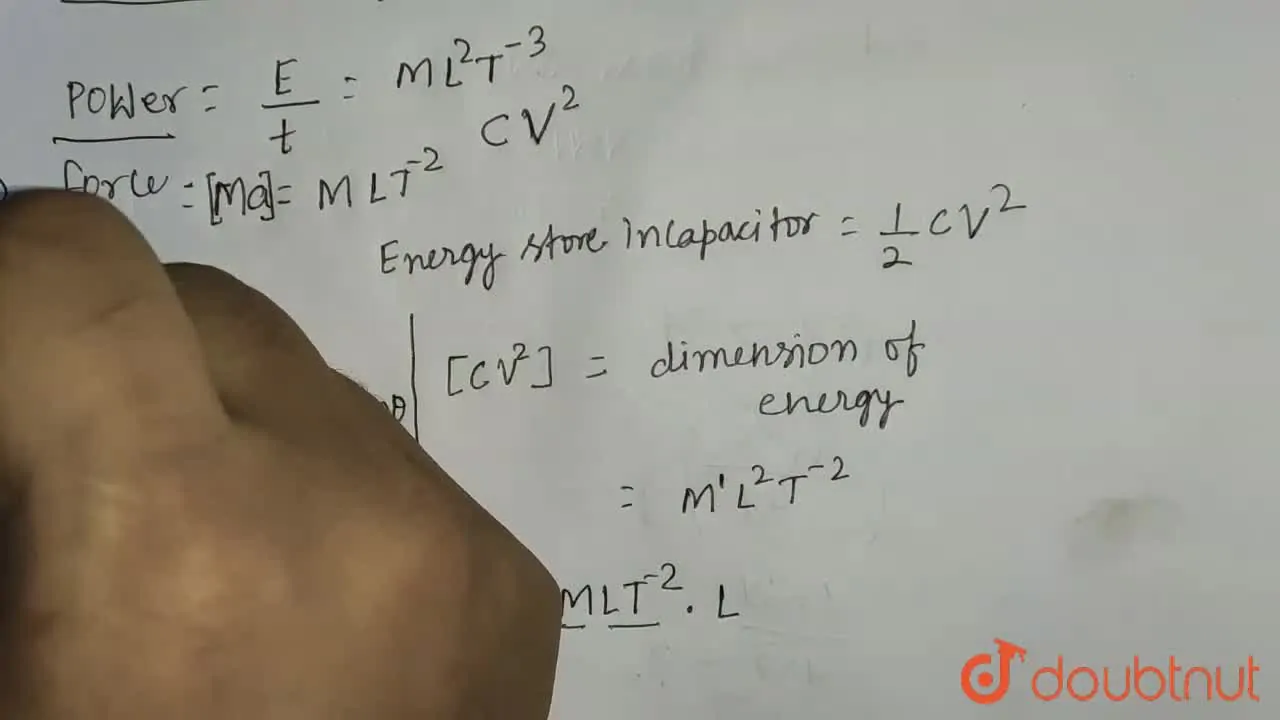 Power = E/t = ML²T⁻³
CV²
Force = [Ma] = MLT⁻²
Energy store in capacitor = 1/2 CV²
[CV²] = dimension of
energy
θ
= M¹L²T⁻²
MLT⁻² . L
doubtnut